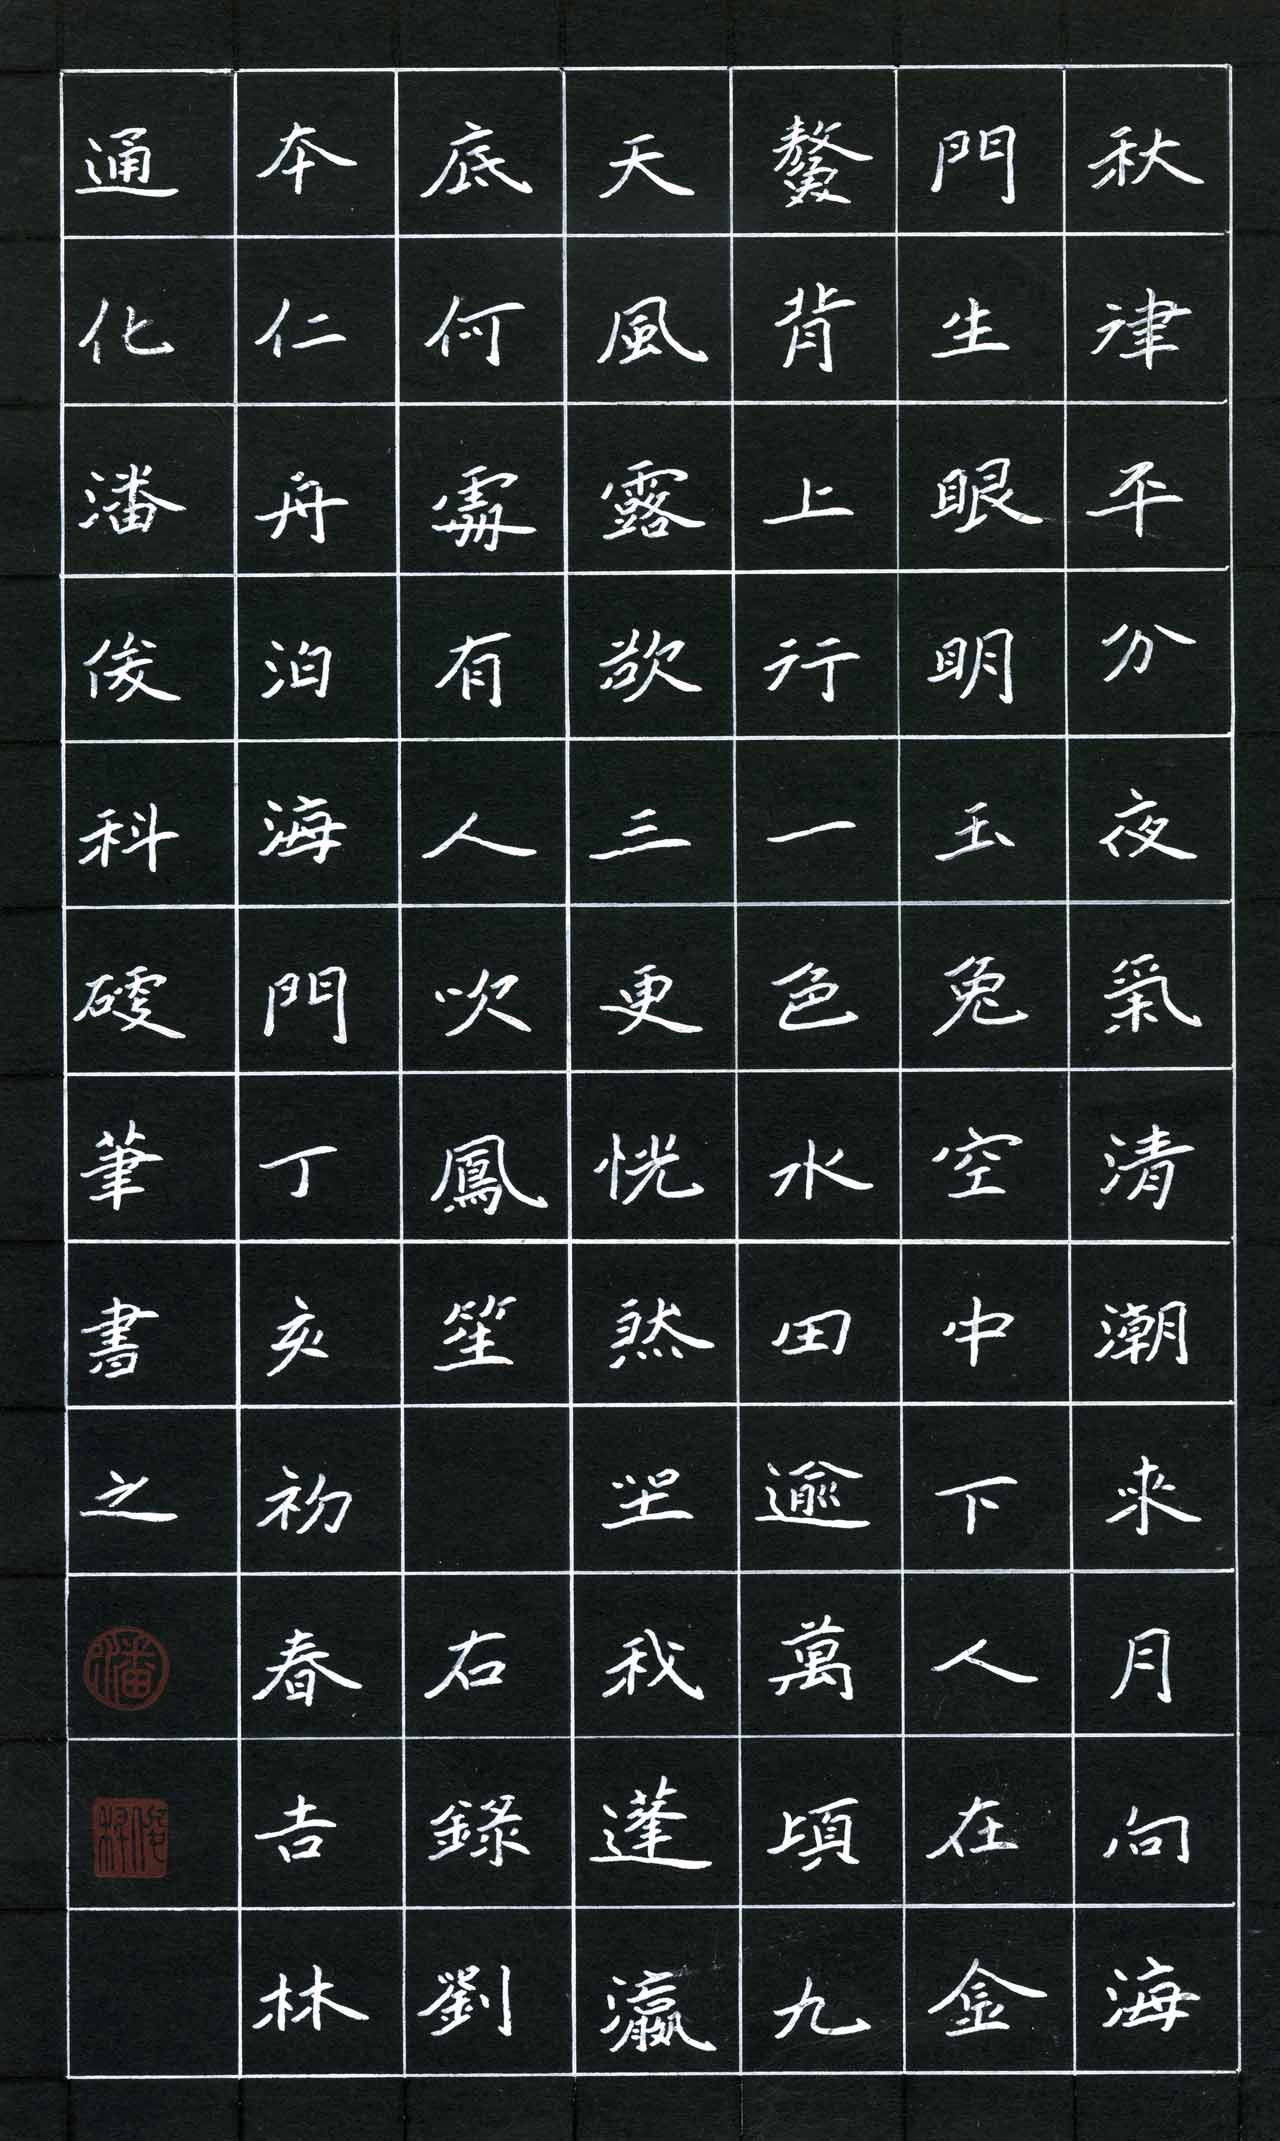 秋律平分夜氣清潮来月向海
門生眼明玉兔空中下人在金
鼇背上行一色水田逾萬頃九
天風露欲三更恍然坐我蓬瀛
底何處有人吹鳳笙 右錄劉
本仁舟泊海門丁亥初春吉林
通化潘俊科硬筆書之
潘
俊科